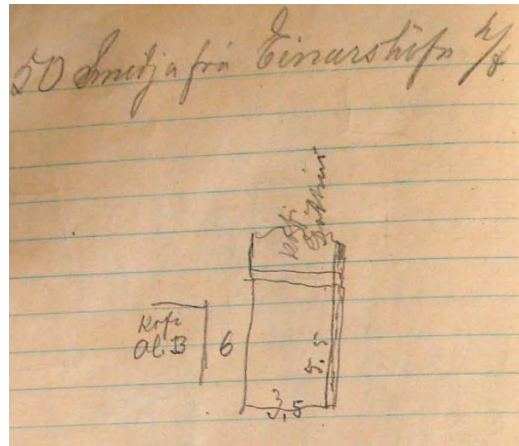 50 Smiðja frá Einarshöfn h/f
Kofi
Kofi
Ol. B
6
5.5
3,5